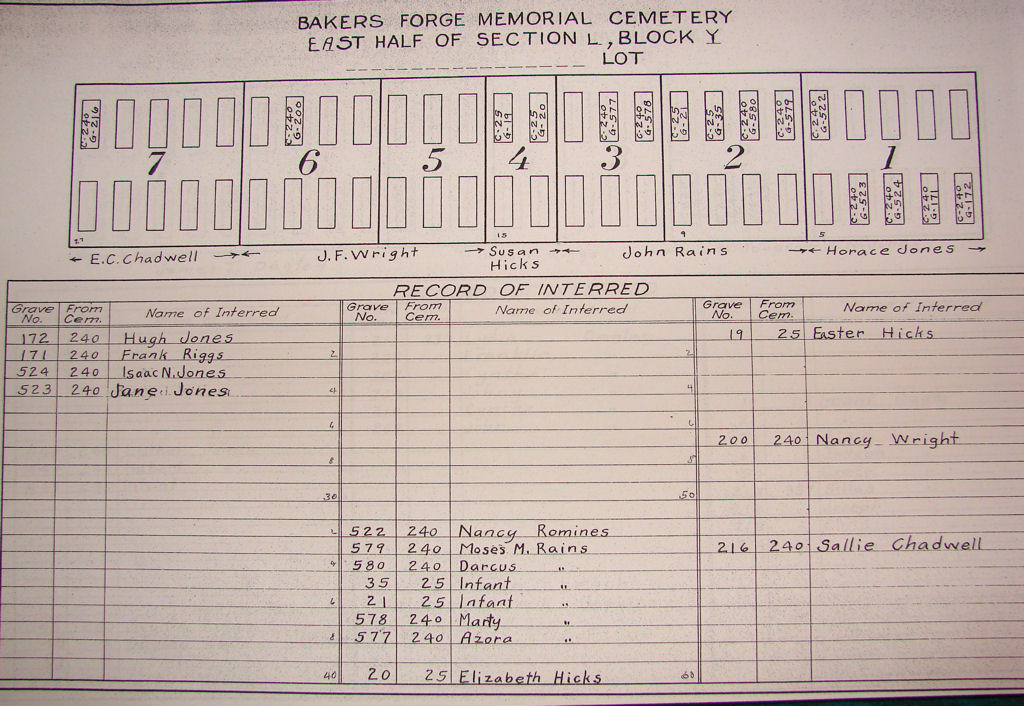 BAKERS FORGE MEMORIAL CEMETERY
EAST HALF OF SECTION L, BLOCK Y
LOT
C-240 G-216
C-240 G-200
C-25 G-19
C-25 G-20
C-240 G-577
C-240 G-578
C-25 G-21
C-25 G-35
C-240 G-580
C-240 G-579
C-240 G-522
7 6 5 4 3 2 1
C-240 G-523
C-240 G-524
C-240 G-171
C-240 G-172
27 15 9 5
E.C. Chadwell J.F. Wright Susan Hicks John Rains Horace Jones
RECORD OF INTERRED
Grave No. From Cem. Name of Interred Grave No. From Cem. Name of Interred Grave No. From Cem. Name of Interred
172 240 Hugh Jones 19 25 Easter Hicks
171 240 Frank Riggs 2 2
524 240 Isaac N. Jones
523 240 Jane Jones 4 4
6 6
200 240 Nancy Wright
8 8
30 50
2 522 240 Nancy Romines
579 240 Moses M. Rains 216 240 Sallie Chadwell
4 580 240 Darcus "
35 25 Infant "
6 21 25 Infant "
578 240 Marty "
8 577 240 Azora "
40 20 25 Elizabeth Hicks 60